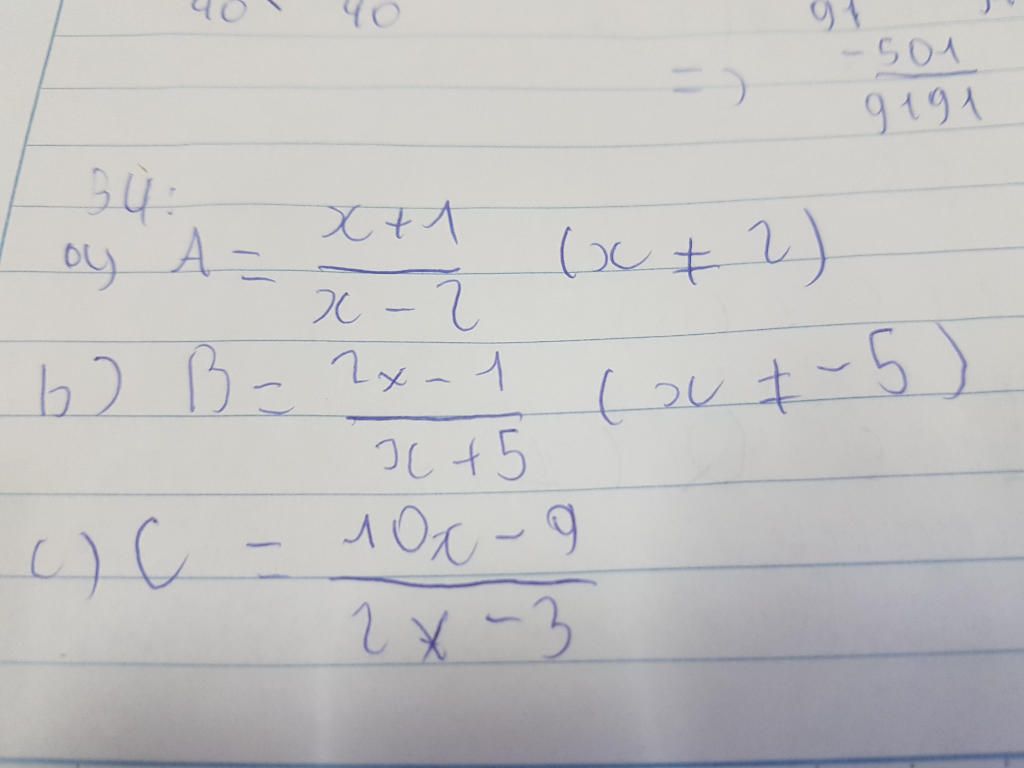 40 40 91
=> -501/9191
34:
a) A = x+1/x-2 (x ≠ 2)
b) B = 2x-1/x+5 (x ≠ -5)
c) C = 10x-9/2x-3